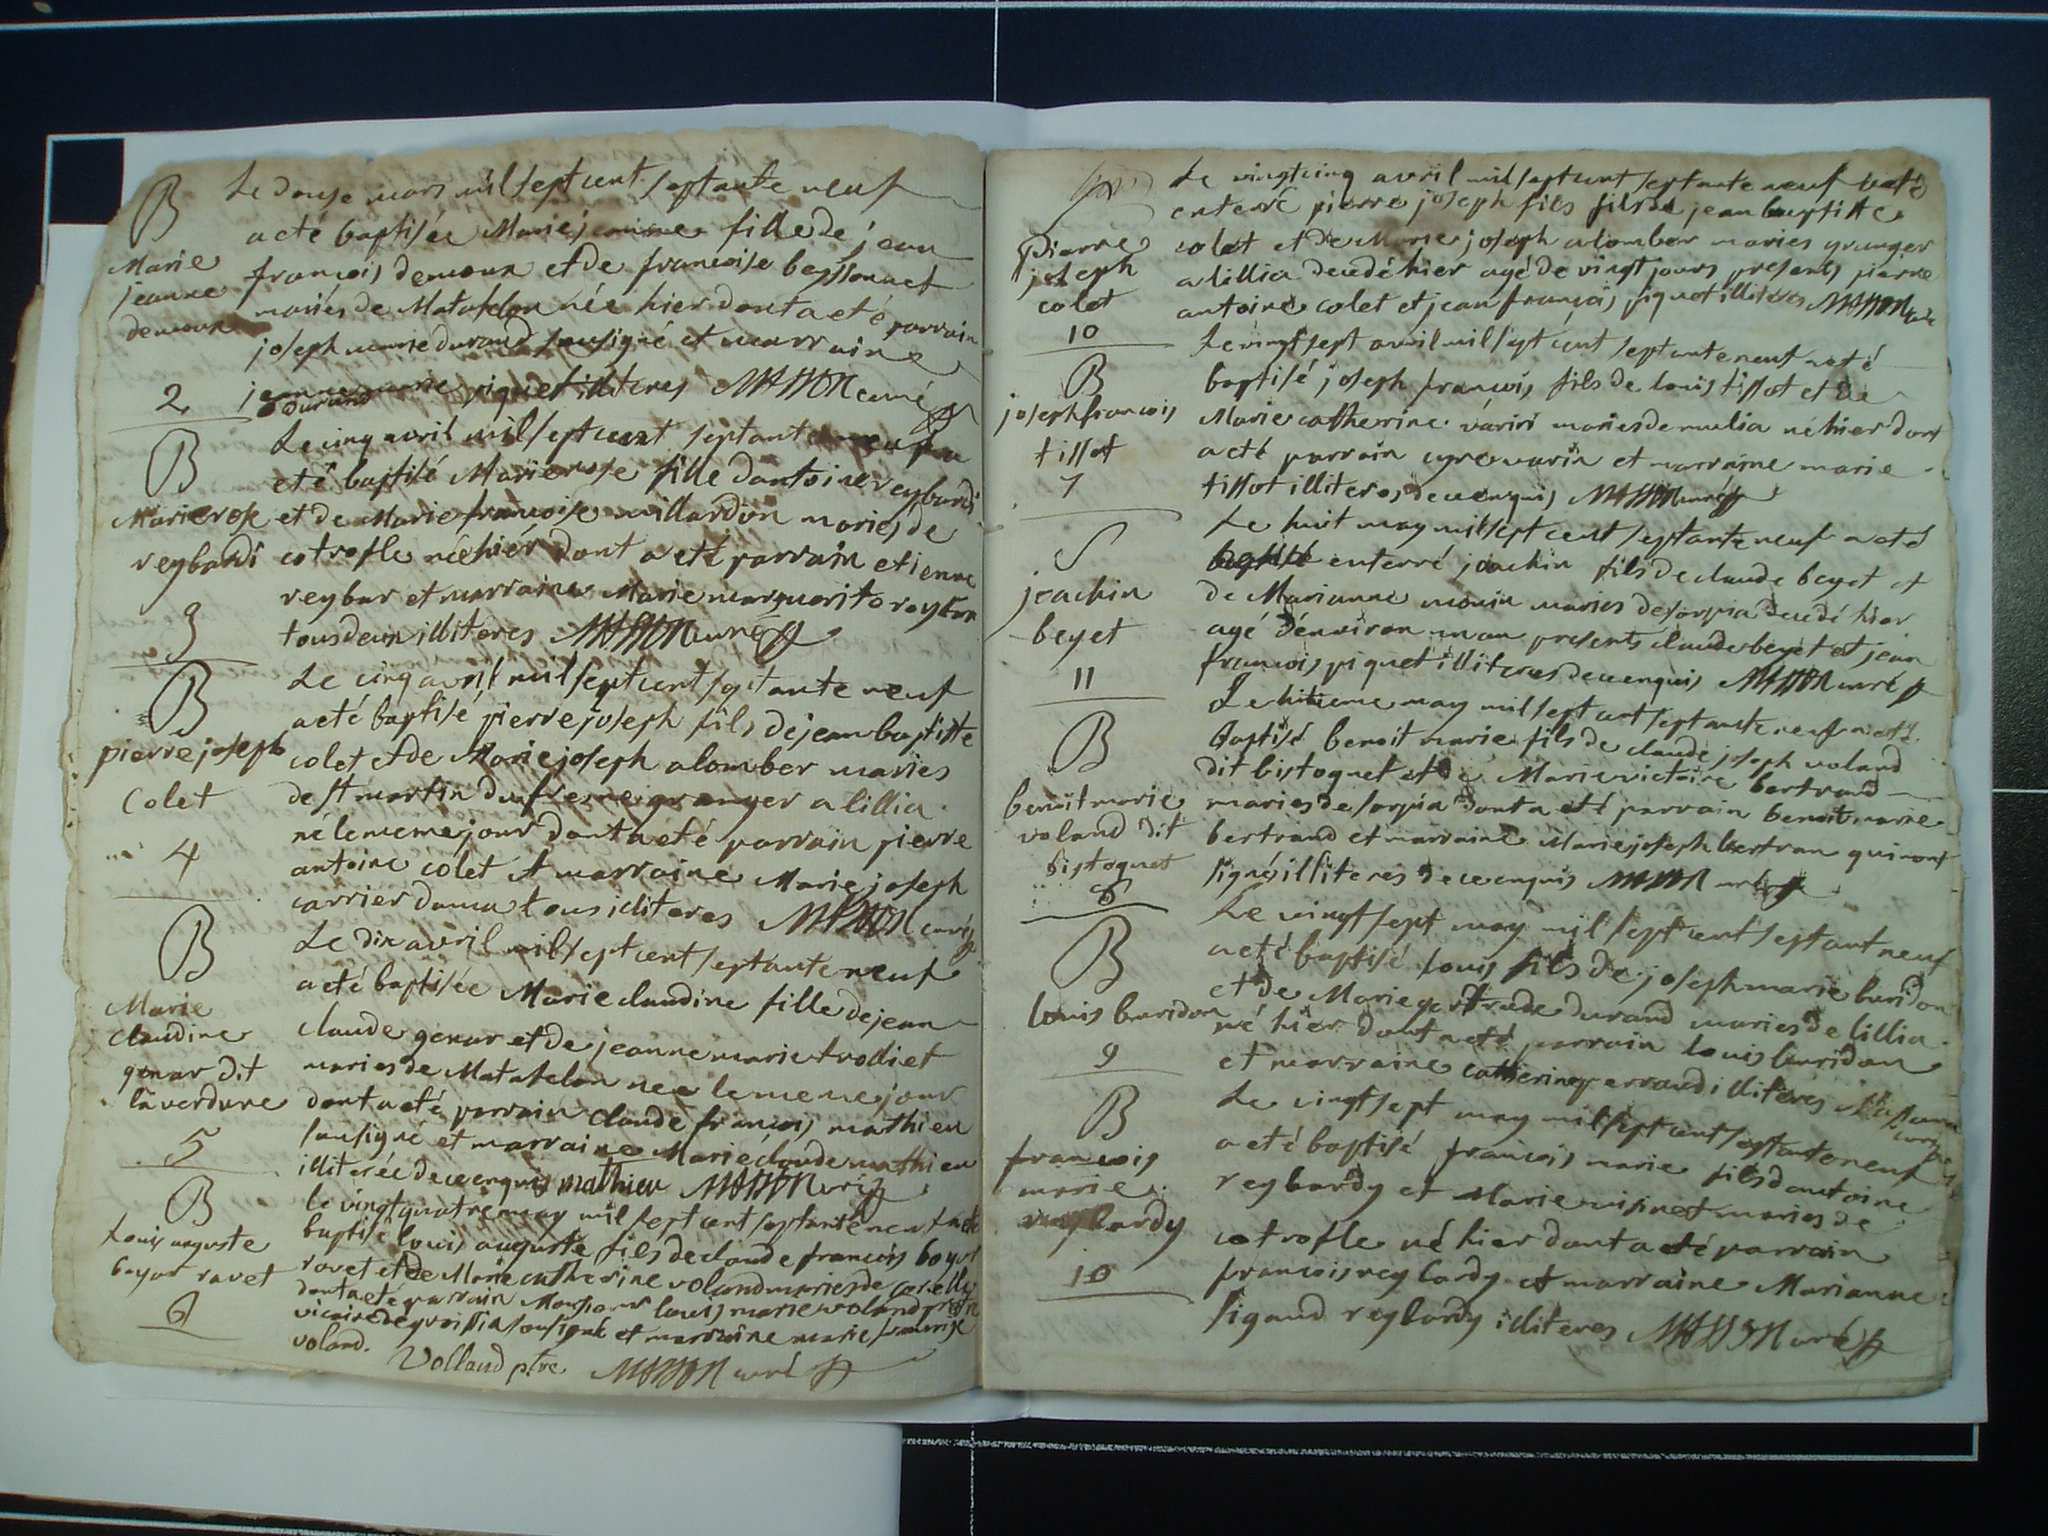 B
Marie
jeanne
demoux
2
Le douze mars mil sept cent septante neuf
a eté baptisée Marie jeanne fille de jean
françois demoux et de francoise beyssonnet
mariés de Matafelon née hier dont a eté parrain
joseph marie durand sousigné et marraine
jeanne marie piquet illiteres MASSON curé
durand
B
Marie rose
reybardi
3
Le cinq avril mil sept cent septante neuf a
eté baptisé Marie rose fille dantoine reybardi
et de Marie francoise millardon mariés de
cotrofle née hier dont a eté parrain etienne
reybar et marraine Marie marguerite reybar
tous deux illiteres MASSON curé
B
pierre joseph
Colet
4
Le cinq avril mil sept cent septante neuf
a eté baptisé pierre joseph fils de jean baptiste
colet et de Marie joseph alomber maries
de st martin dufresne granger a lillia
né le meme jour dont a eté parrain pierre
antoine colet et marraine Marie joseph
carrier tous iliteres MASSON curé
B
Marie
claudine
genar dit
la verdure
5
Le dix avril mil sept cent septante neuf
a eté baptisée Marie claudine fille de jean
claude genar et de jeanne marie trolliet
maries de Matafelon nee le meme jour
dont a eté parrain claude françois mathieu
sousigné et marraine Marie claude mathieu
illiterée de ce enquis mathieu MASSON curé
B
Louis auguste
ravet
6
le vingt quatre may mil sept cent septante neuf a eté
baptisé louis auguste fils de claude francois
ravet et de Marie catherine voland maries de
dont a eté parrain Monsieur louis marie voland pretre
vicaire de sousigné et marraine marie francoise
voland. Volland ptre MASSON curé
pierre
joseph
colet
10
Le vingt cinq avril mil sept cent septante neuf a eté
enterré pierre joseph fils fils de jean baptiste
colet et de Marie joseph alomber maries granger
a lillia decedé hier agé de vingt jours presents pierre
antoine colet et jean françois piquet illiteres MASSON curé
B
joseph francois
tissot
7
Le vingt sept avril mil sept cent septante neuf a eté
baptisé joseph francois fils de louis tissot et de
Marie catherine maries de né hier dont
a eté parrain varin et marraine marie
tissot illiteres de ce enquis MASSON curé
S
joachin
beyet
11
Le huit may mil sept cent septante neuf a eté
baptisé enterré joachin fils de claude beyet et
de Marianne monin maries de sorpia decedé hier
agé d'environ un an presents claude beyet et jean
francois piquet illiteres de ce enquis MASSON curé
B
benoit marie
voland dit
bistoquet
8
Le hitieme may mil sept cent septante neuf a eté
Baptisé benoit marie fils de claude joseph voland
dit bistoquet et de Marie victoire bertrand
maries de sorpia dont a eté parrain benoit marie
bertrand et marraine Marie joseph bertran qui n'ont
signé illiteres de ce enquis MASSON curé
B
louis buridon
9
Le vingt sept may mil sept cent septant neuf
a eté baptisé louis fils de joseph marie buridon
et de Marie gertrude durand maries de lillia
né hier dont a eté parrain louis buridon
et marraine catherine illiteres Masson
curé
B
francois
marie
reybardy
10
Le vingt sept may mil sept cent septante neuf
a eté baptisé francois marie fils dantoine
reybardy et Marie maries de
cotrofle né hier dont a eté parrain
francois reybardy et marraine Marianne
sigaud reybardy iliteres MASSON curé